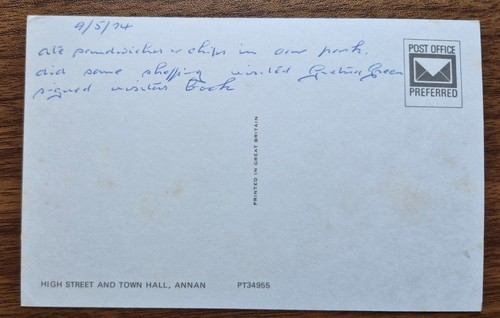 9/5/74
ate sandwiches & chips in car park.
did some shopping visited Gretna Green
signed visitors Book
POST OFFICE
PREFERRED
PRINTED IN GREAT BRITAIN
HIGH STREET AND TOWN HALL, ANNAN PT34955